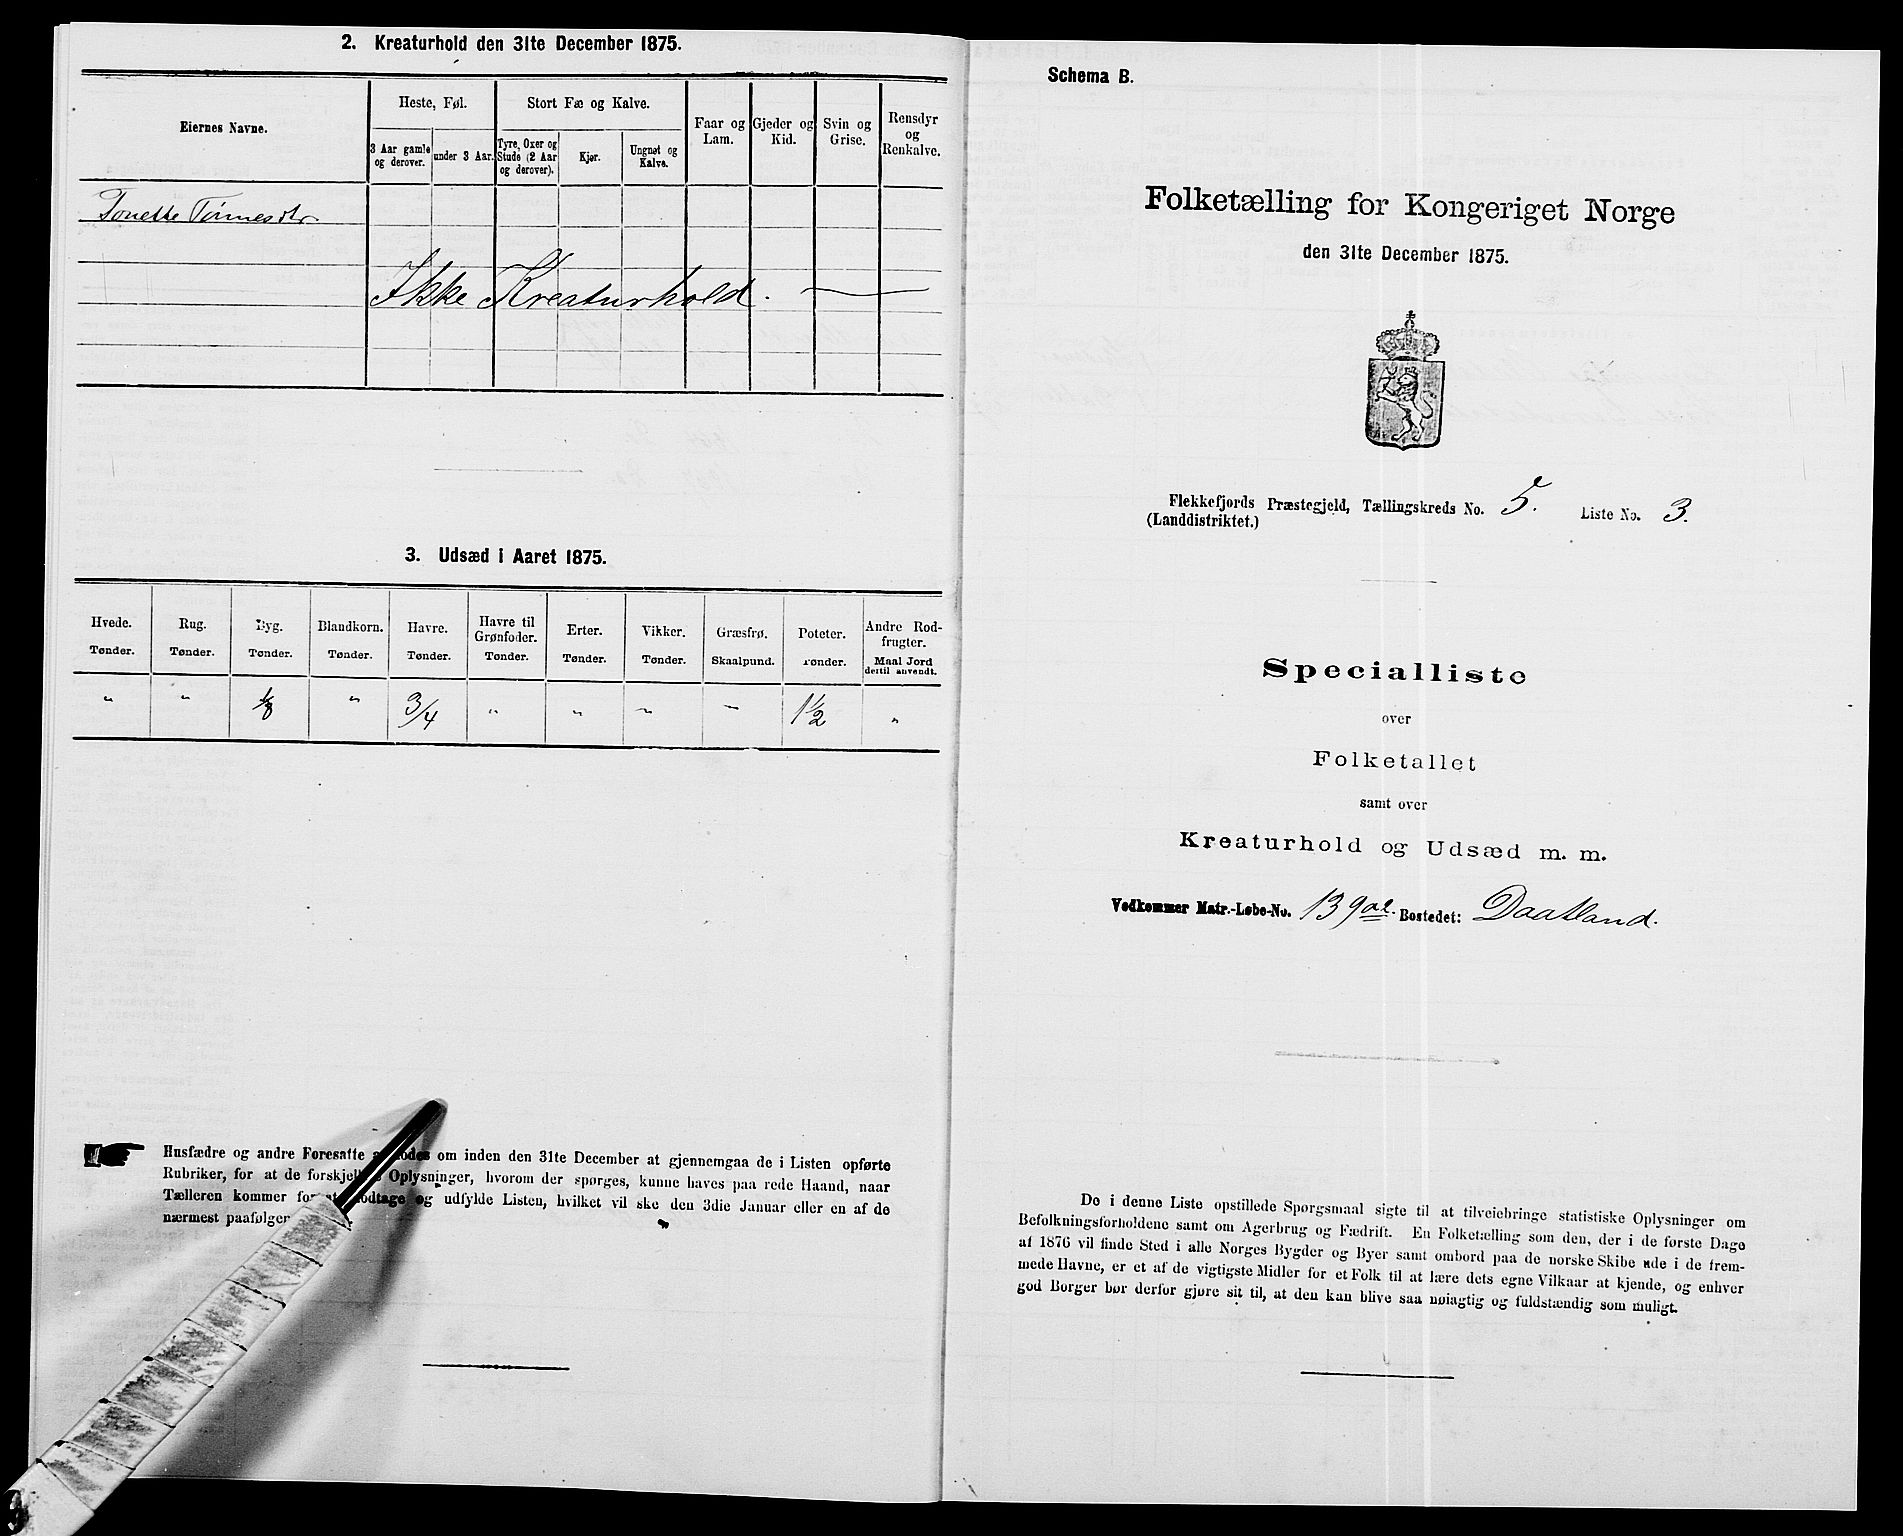 2. Kreaturhold den 31te December 1875.
Eiernes Navne.
Heste, Føl.
3 Aar gamle og derover.
under 3 Aar.
Stort Fæ og Kalve.
Tyre, Oxer og Stude (2 Aar og derover).
Kjør.
Ungnøt og Kalve.
Faar og Lam.
Gjeder og Kid.
Svin og Grise.
Rensdyr og Renkalve.
Tonette Tønnesdtr
Ikke Kreaturhold. —
3. Udsæd i Aaret 1875.
Hvede. Rug. Byg. Blandkorn. Havre. Havre til Grønfoder. Erter. Vikker. Græsfrø. Poteter. Andre Rodfrugter.
Tønder. Tønder. Tønder. Tønder. Tønder. Tønder. Tønder. Tønder. Skaalpund. Tønder. Maal Jord dertil anvendt.
" " 1/8 " 3/4 " " " " 1 1/2 "
Husfædre og andre Foresatte om inden den 31te December at gjennemgaa de i Listen opførte
Rubriker, for at de Oplysninger, hvorom der spørges, kunne haves paa rede Haand, naar
Tælleren kommer for at modtage og udfylde Listen, hvilket vil ske den 3die Januar eller en af de
nærmest
Schema B.
Folketælling for Kongeriget Norge
den 31te December 1875.
Flekkefjords Præstegjeld, Tællingskreds No. 5. Liste No. 3.
(Landdistriktet.)
Specialliste
over
Folketallet
samt over
Kreaturhold og Udsæd m. m.
Vedkommer Matr.-Løbe-No. 139 Bostedet: Daatland.
De i denne Liste opstillede Spørgsmaal sigte til at tilveiebringe statistiske Oplysninger om
Befolkningsforholdene samt om Agerbrug og Fædrift. En Folketælling som den, der i de første Dage
af 1876 vil finde Sted i alle Norges Bygder og Byer samt ombord paa de norske Skibe ude i de frem-
mede Havne, er et af de vigtigste Midler for et Folk til at lære dets egne Vilkaar at kjende, og enhver
god Borger bør derfor gjøre sit til, at den kan blive saa nøiagtig og fuldstændig som muligt.